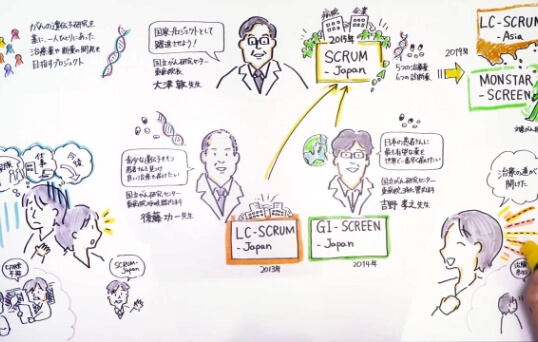 がんの遺伝子研究を
基に、一人ひとりにあった
治療薬や診断薬の開発を
目指すプロジェクト
国家プロジェクトとして
躍進させよう!
国立がん研究センター
東病院長
大津 敦 先生
病院 企業
2015年
SCRUM
-Japan
5つの治療薬
6つの診断薬
2019年
LC-SCRUM
-Asia
MONSTAR
-SCREEN
希少な遺伝子をもつ
患者さんを見つけ
良い治療を届けたい
国立がん研究センター
東病院呼吸器内科
後藤 功一 先生
日本の患者さんに
最も有望な薬を
世界で一番早く届けたい
国立がん研究センター
東病院消化管内科
吉野 孝之 先生
LC-SCRUM
-Japan
2013年
GI-SCREEN
-Japan
2014年
仕事
SCRUM-
Japan
治療の道が
開けた